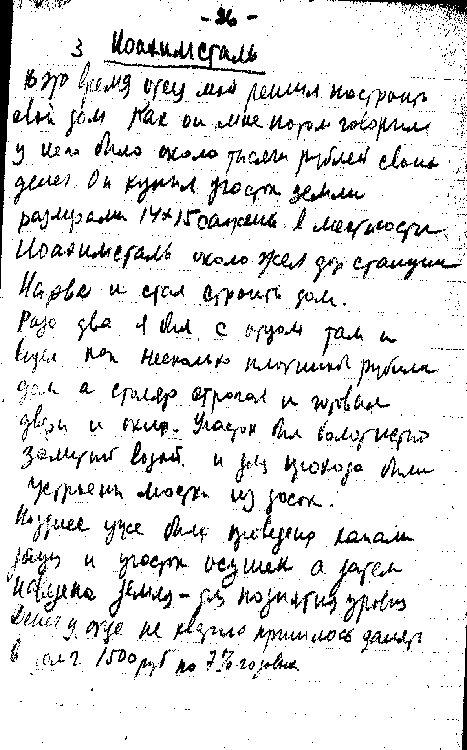 - 26 -
3 Иоахимсталь
В это время отец мой решил построить
свой дом Как он мне потом говорил
у него было около тысячи рублей своих
денег Он купил участок земли
размерами 14 x 15 сажень в местности
Иоахимсталь около жел дор станции
Нарва и стал строить дом.
Раза два я был с отцом там и
видел как несколько плотников рубили
дом а столяр строгал и готовил
двери и окна. Участок был болотистый
залитый водой и для прохода были
устроены мостки из досок.
Позднее уже были проведены канали
зация и участок осушен а затем
навезена земля - для поднятия уровня
Денег у отца не хватило пришлось занять
в 1500 руб по 7% годовых